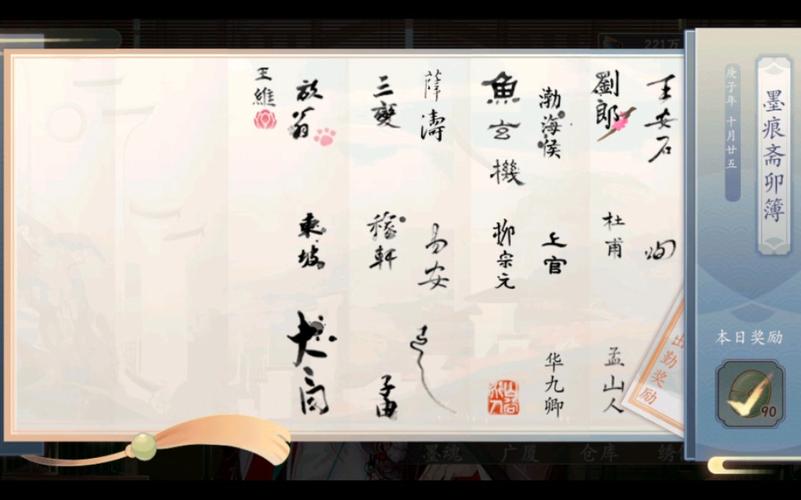 墨痕斋卯簿
庚子年 十月廿五
王安石
恂
劉郎
杜甫
孟山人
渤海侯
上官
华九卿
魚玄機
柳宗元
薛濤
易安
三變
稼軒
放翁
東坡
王維
出勤奖励
本日奖励
90
221万
墨魂
广厦
仓库